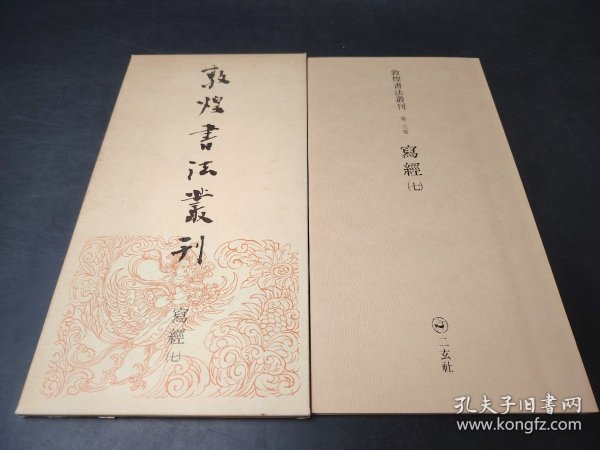 敦煌書法叢刊
寫經
(七)
敦煌書法叢刊
寫經
(七)
二玄社
孔夫子旧书网
www.kongfz.com